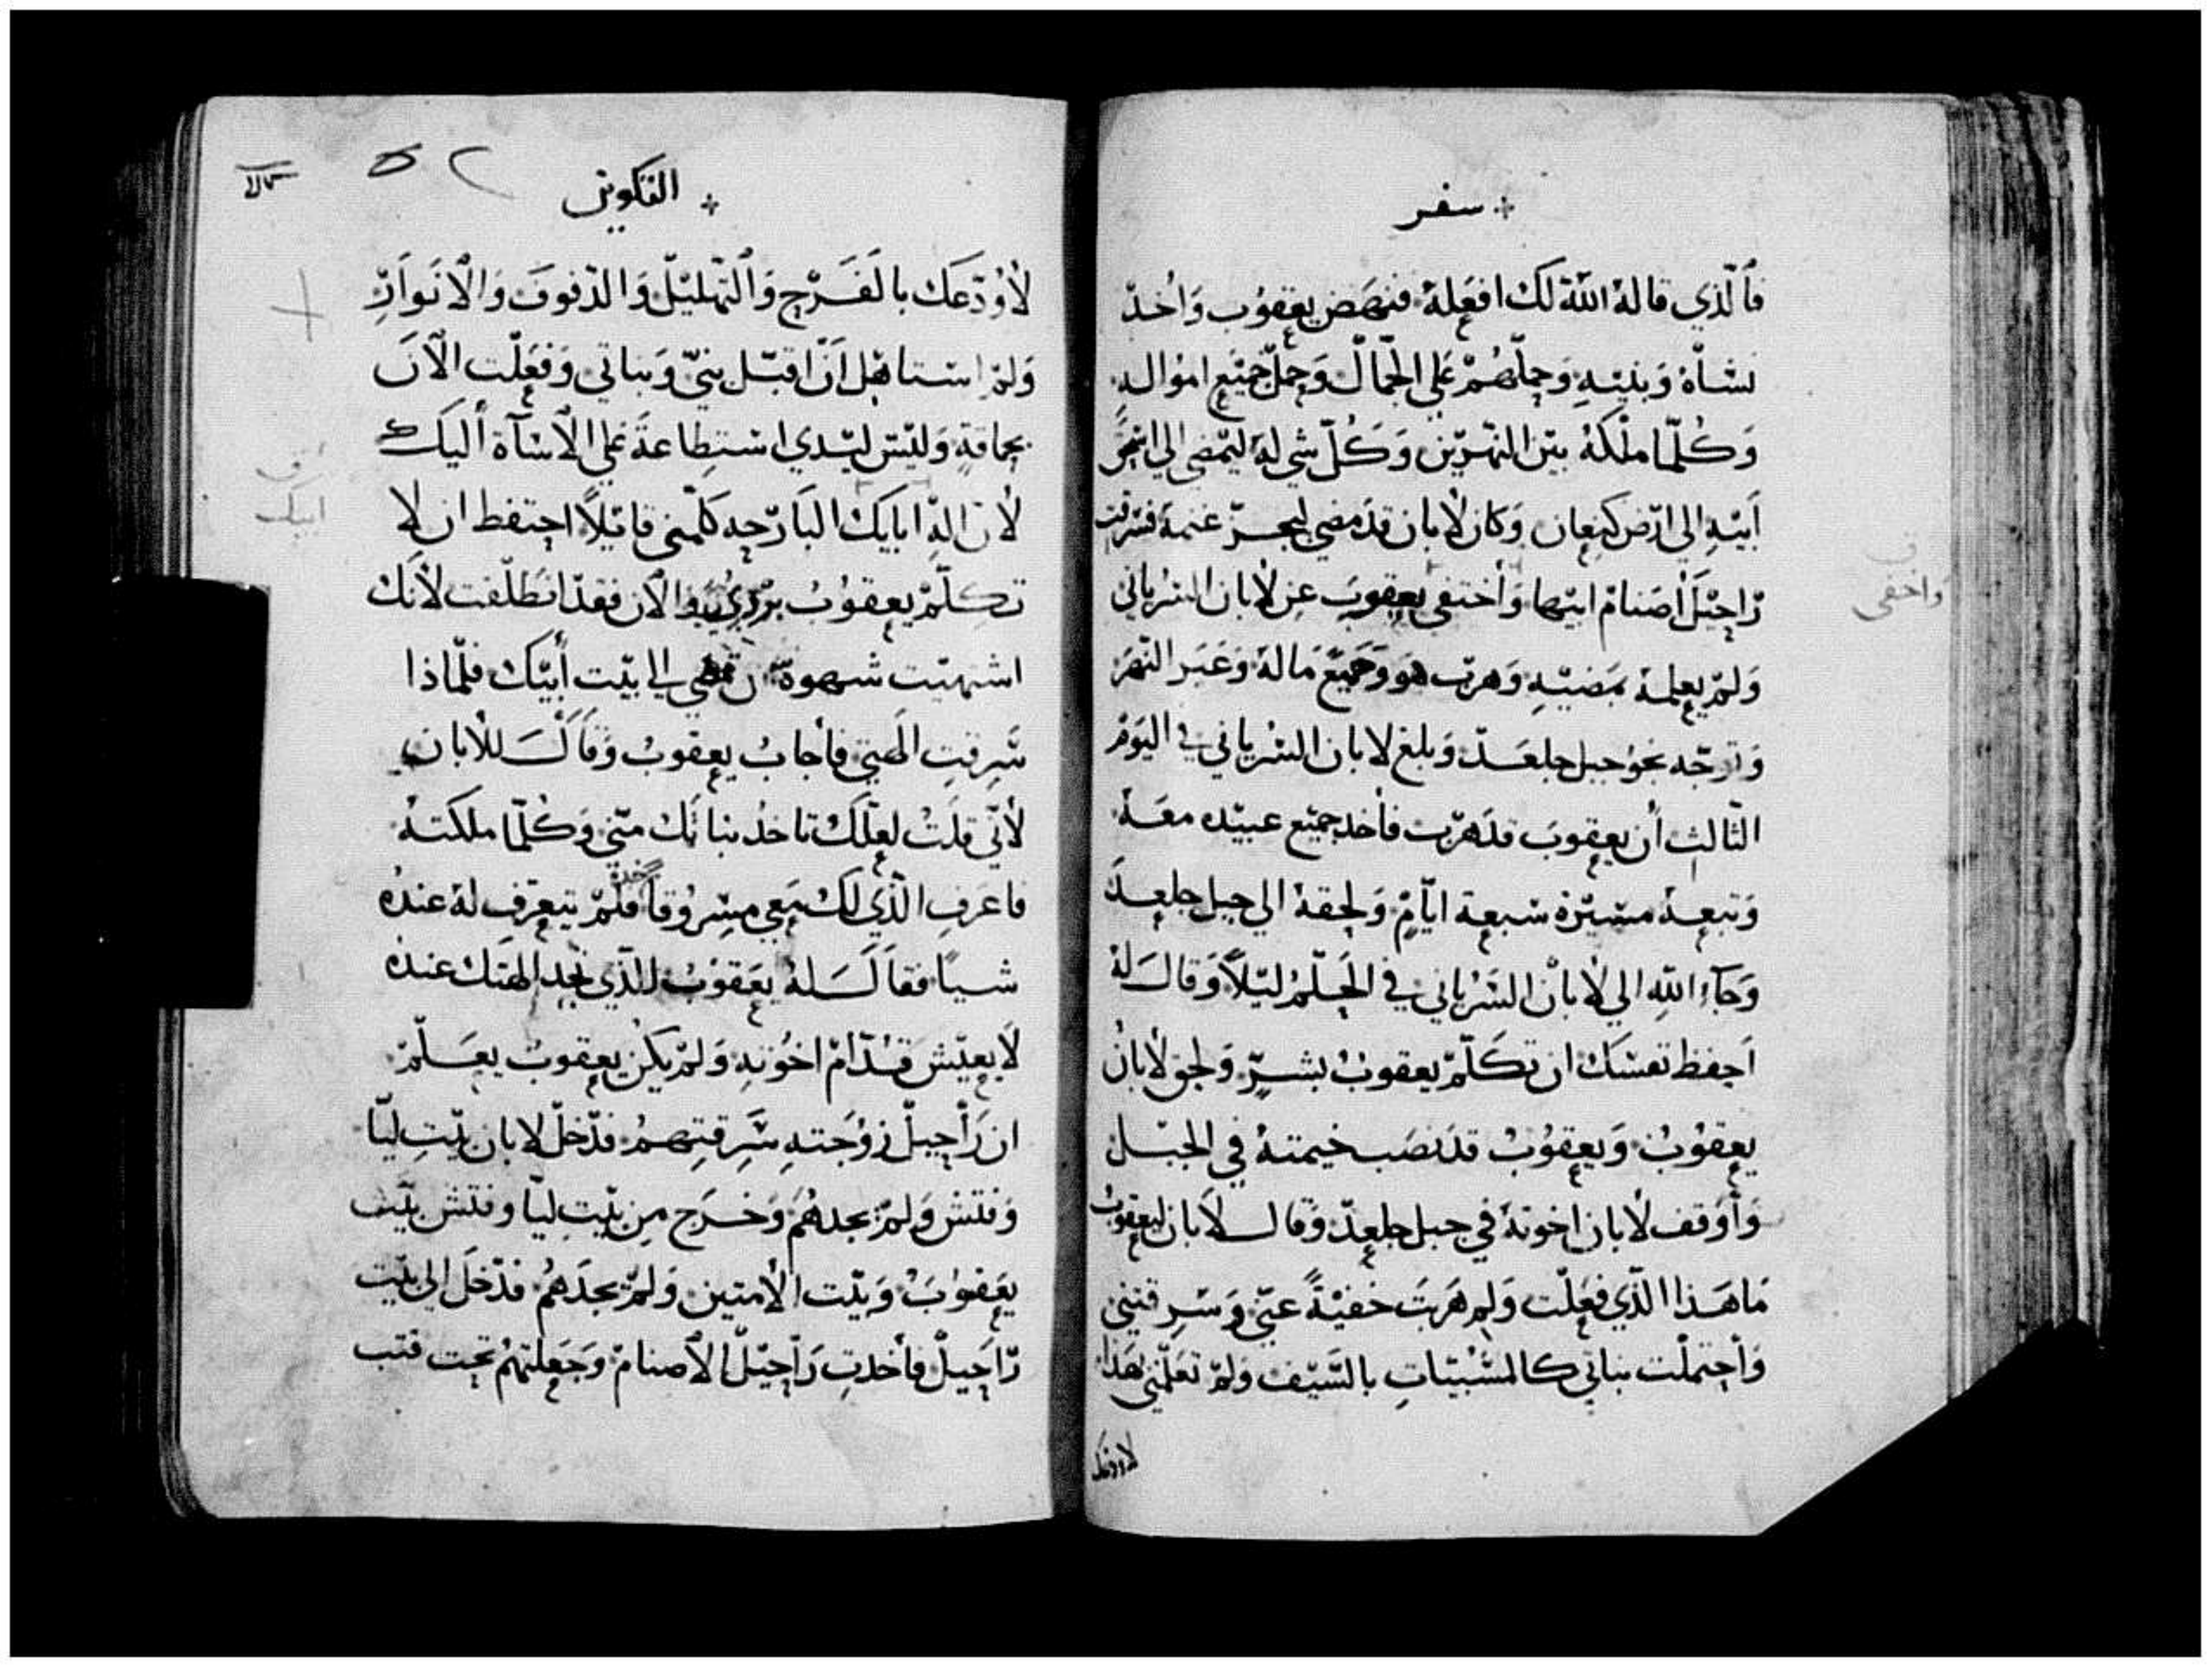 سفر
فألّذي قالهُ اللّهُ لكَ افعِلهُ فنهَض يعقوُب وَاخدّ
نسَاهُ وَبنيْهِ وَحملهُمْ عَلي الجمَال وَحمل جميْع اموُاله
وَكُلّما ملكهُ بيْن النهْريْن وَكُلّ شي لهُ ليمْضي الي اسْحق
اَبيْهِ الي ارْض كنعان وَكان لابان قدَ مضي ليجزّ غنمهُ فسْرقت
رْاحيْل أصَنامْ ابيْها وَأختفي يعقوبَ عن لابان السْرُياني
وَلمْ يعلمهُ بمَضيْهِ وَهربْ هوَ وَجَميْعَ مَالهُ وَعَبَر النهَرْ
وَتوجّه نحوُ جبل جلعَد وَبلغ لابان السْرُياني في اليَومْ
الثالث أن يعقوبَ قدَ هرْب فأخد جميْع عبيْده معَهُ
وَتبعهُ مسْيْرْة سْبعة ايّامْ وَلحقهُ الي جبل جلعدَ
وَجَآء اللّه الي لابان السَرْياني في الحَلمُ ليْلاً وَقالَ لهُ
اَحفظ نفسْكَ ان تكَلّمْ يعقوبْ بشرّ وَلحق لابانْ
يعقوُبْ وَيعقوُبْ قدَ نصَب خيمتهُ في الجبْل
وَأوَقف لابان اخوتهُ في جبل جلعدْ وَقال لابان ليعقوبُ
مَا هَذا الّذي فعَلت وَلم هَربَت خفيْةً عنيّ وَسَرقتني
وَأحتملْت بناتي كالمسَبْيْاتِ بالسَّيْف وَلمْ تعَلّمْني بهَذا
لاودعك
وَاخفى
التكوين
لأوُدّعَك بالفَرْح وَالتهليْل وَالدّفوفَ وَالانوَارْ
وَلمْ اسْتاهل اَنّ اقبّل بنيّ وَبناتي وَفعَلْت الآنَ
بحماقةٍ وَليْسْ ليْدي اسْتطاعَةَ عَلي الاسْآة أليَك
لأن اله ابايك البَارْحه كَلّمني قايلاً احتفط ان لا
تكلّمْ يعقوُبْ برْدي والان فقدْ انطلقت لأنك
اشتهيْت شهوة ان تمضي الي بيْت أبيْك فلّماذا
سَرقتِ الهتي فأجابُ يعقوبُ وَقاَلَ للأبان
لأنّي قلَتُ لعلّكَ تاخدُ بناتكَ منّي وَكُلّما ملكتهُ
فاعرَف الّذي لكَ مَعي مسْروُقاً خده فلمّ يتعرّف لهُ عندهُ
شيًا فقاَل لهُ يعَقوُبْ للّذي تجد الهتك عندهُ
لا يعيْش قدّامْ اخوُته وَلمْ يكن يعقوبْ يعلّمْ
ان رَأحيل زوُجَتهِ سَرقتهمُ فدّخلّ لابان بيْت ليّا
وَفتش وَلمْ يجدهُمْ وَخرَج من بيْت ليّا وفتش بيْت
يعَقوبَ وَبيْت الأمتين وَلمْ يجدَهُم فدّخلَ الي بيْت
رْاحَيل فأخدتِ رَاحيْل الأصنامْ وَجَعلتهمُ تحت قتب
ابيك